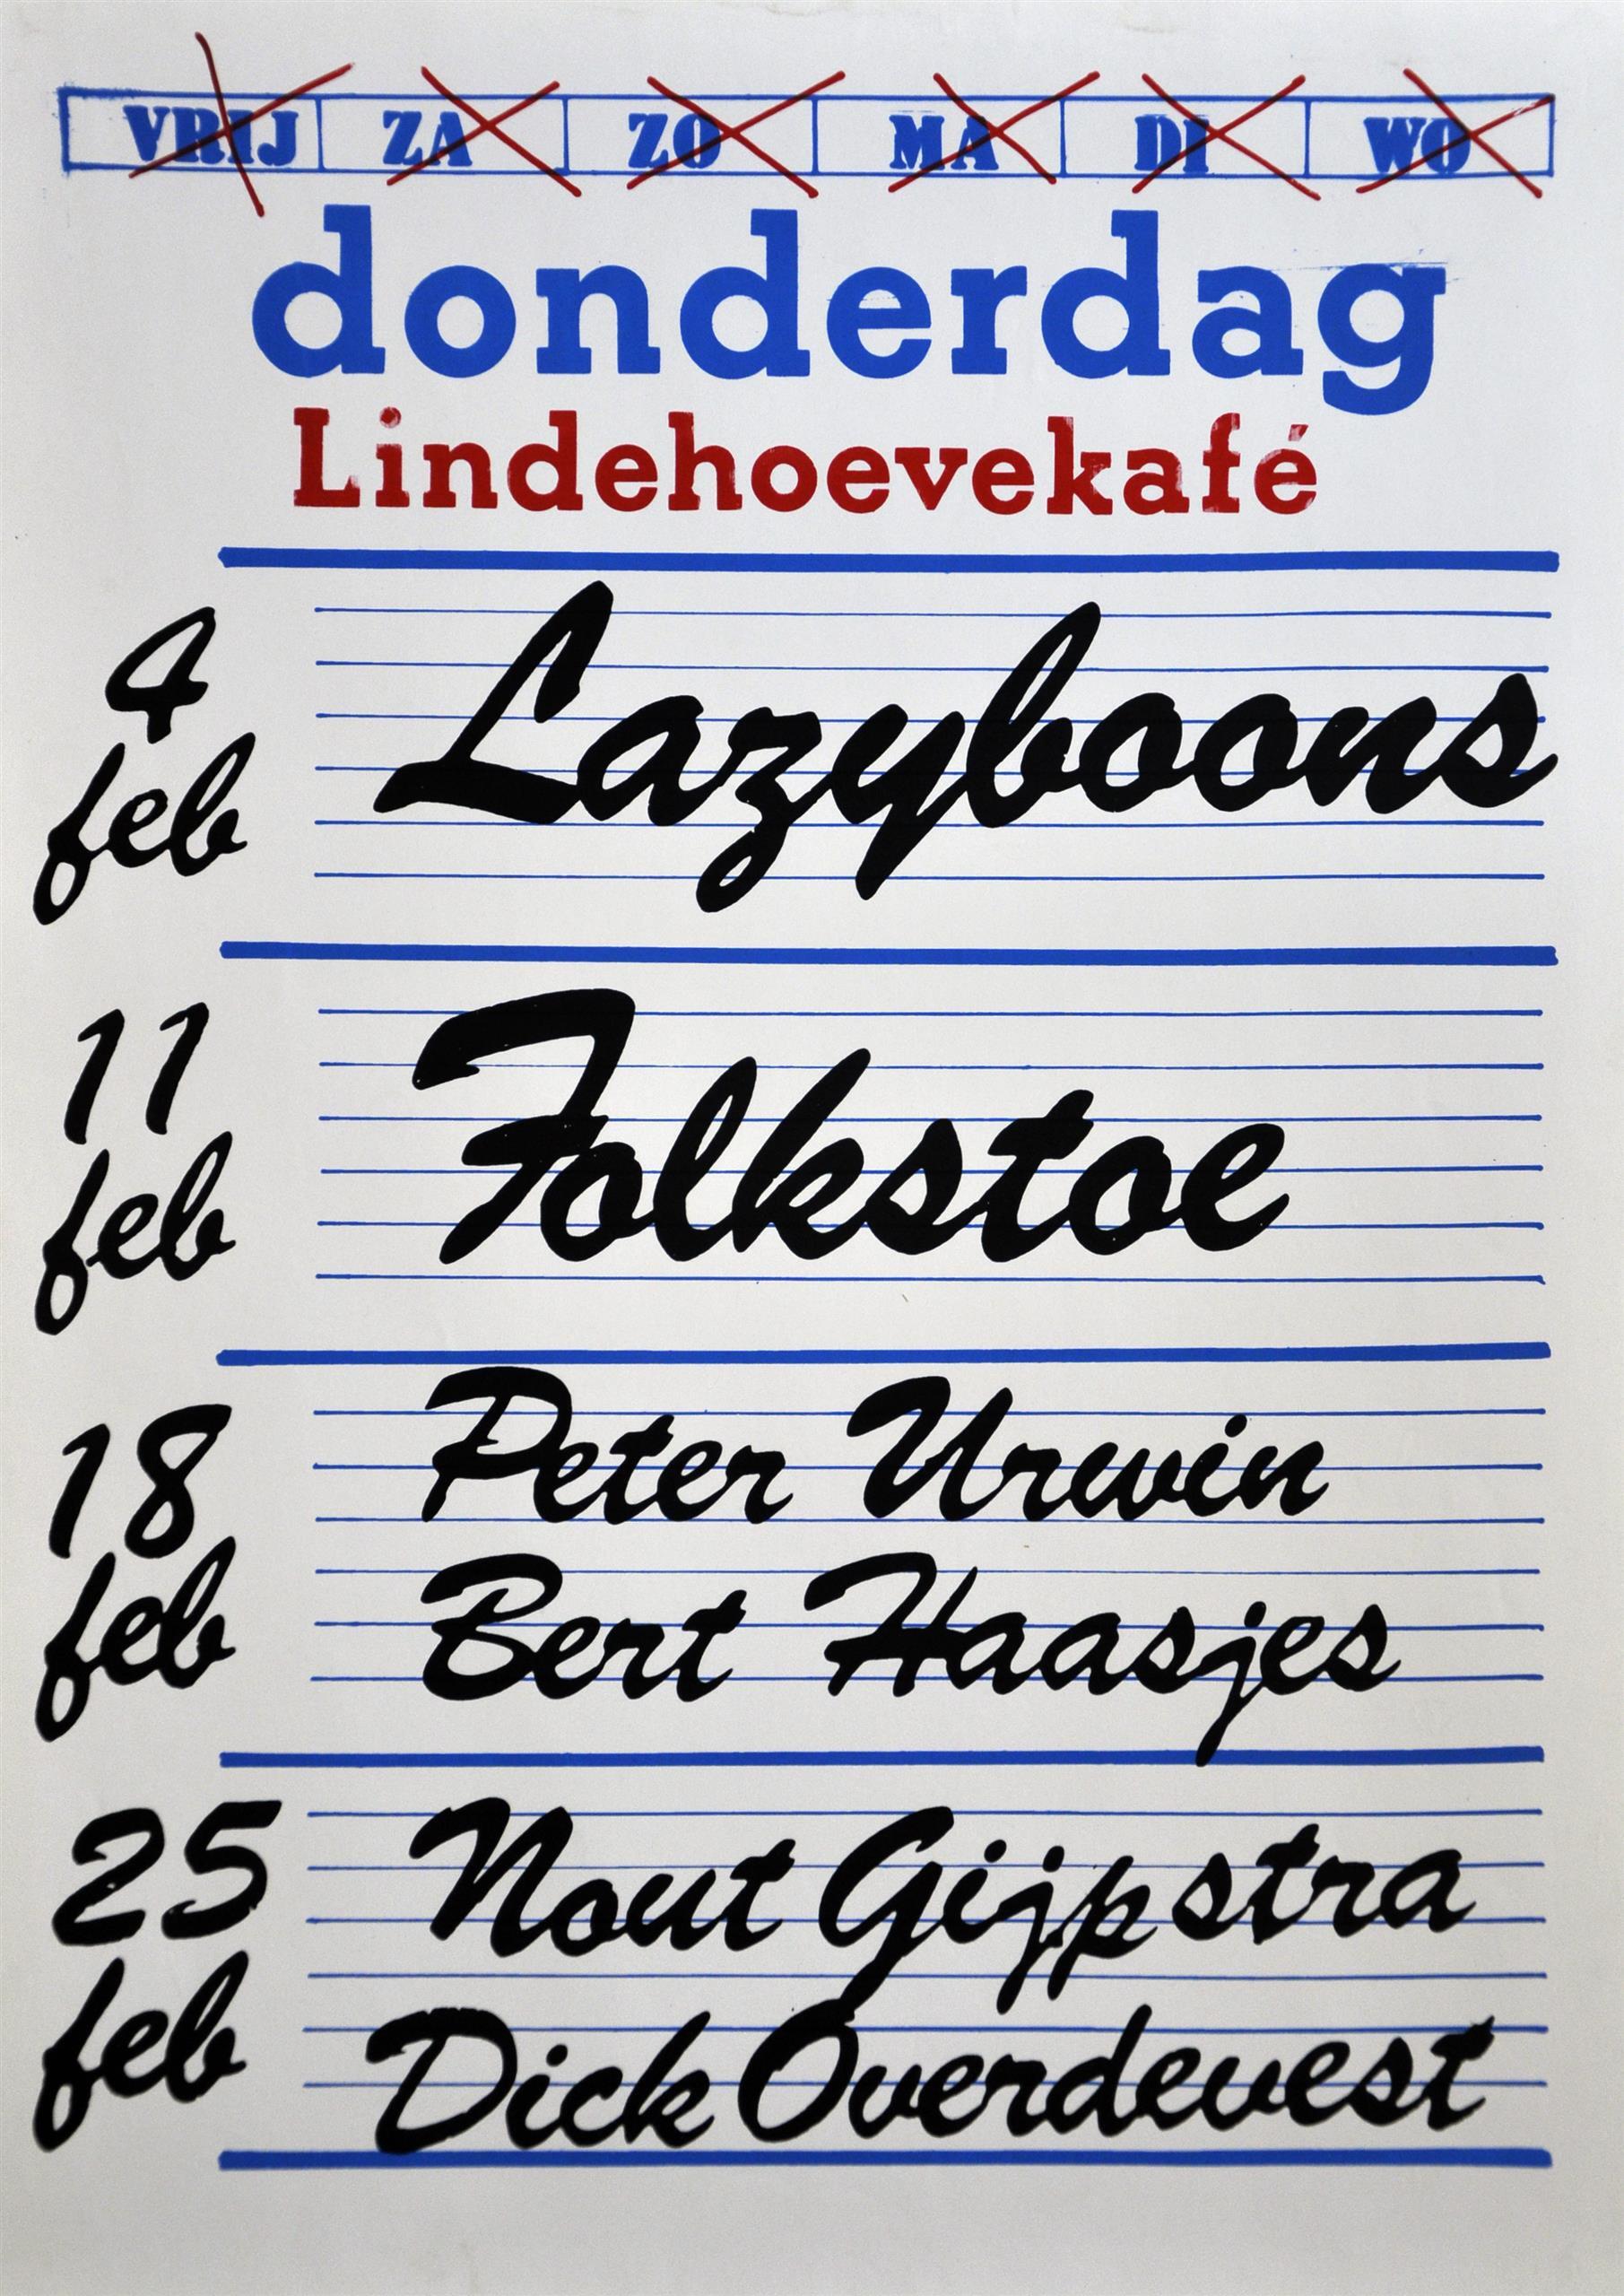 VRIJ ZA ZO MA DI WO
donderdag
Lindehoevekafé
4 feb Lazyboons
11 feb Folkstoe
18 feb Peter Urwin
Bert Haasjes
25 feb Nout Gijpstra
Dick Overdevest